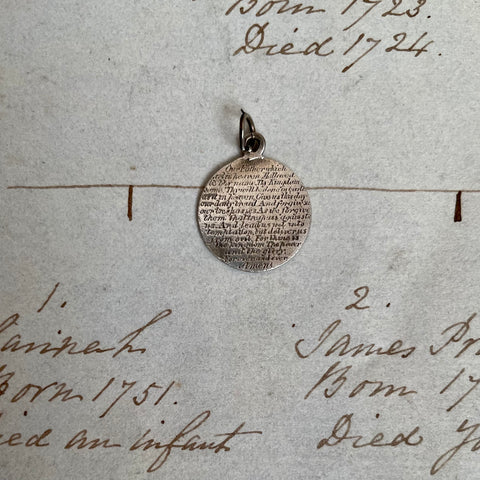 Born 1723.
Died 1724.
Our Father which
art in heaven Hallowed
be Thy name. Thy Kingdom
come Thy will be done in earth
as it is in heaven Give us this day
our daily bread And forgive us
our trespasses As we forgive
them That trespass against
us. And lead us not into
temptation, but deliver us
from evil. For thine is
the kingdom The power
and the glory.
for ever and ever
amen.
1.
Hannah
Born 1751.
Died an infant
2.
James
Born 17
Died